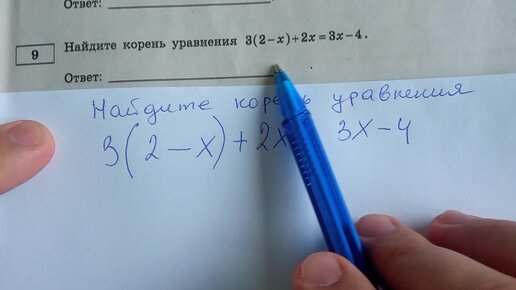 Ответ:
9
Найдите корень уравнения 3(2−x)+2x=3x−4.
Ответ:
Найдите корень уравнения
3(2−x)+2x 3x−4